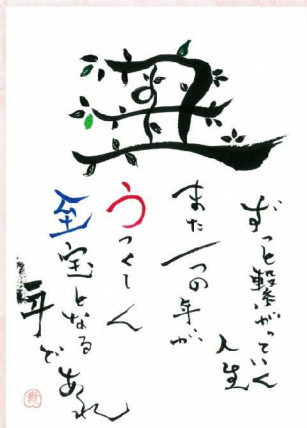 丑
ずっと繋がっていく
人生
また一つの年が
うつくしく
至宝となる
年で
あれ